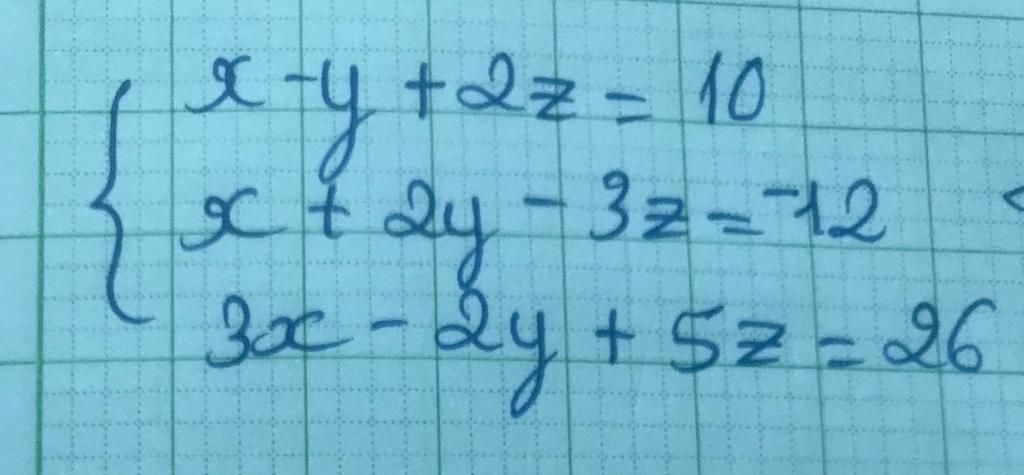 x - y + 2z = 10
x + 2y - 3z = -12
3x - 2y + 5z = 26